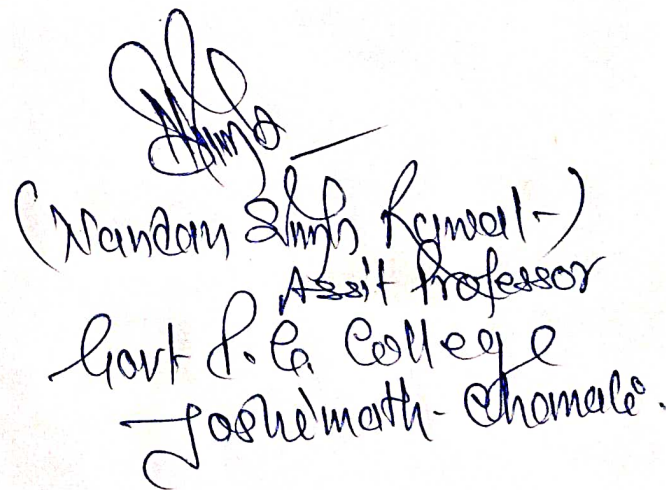 (Nandan Singh Rawat-)
Assit Professor
Govt P.G. College
Joshimath- Chamoli.